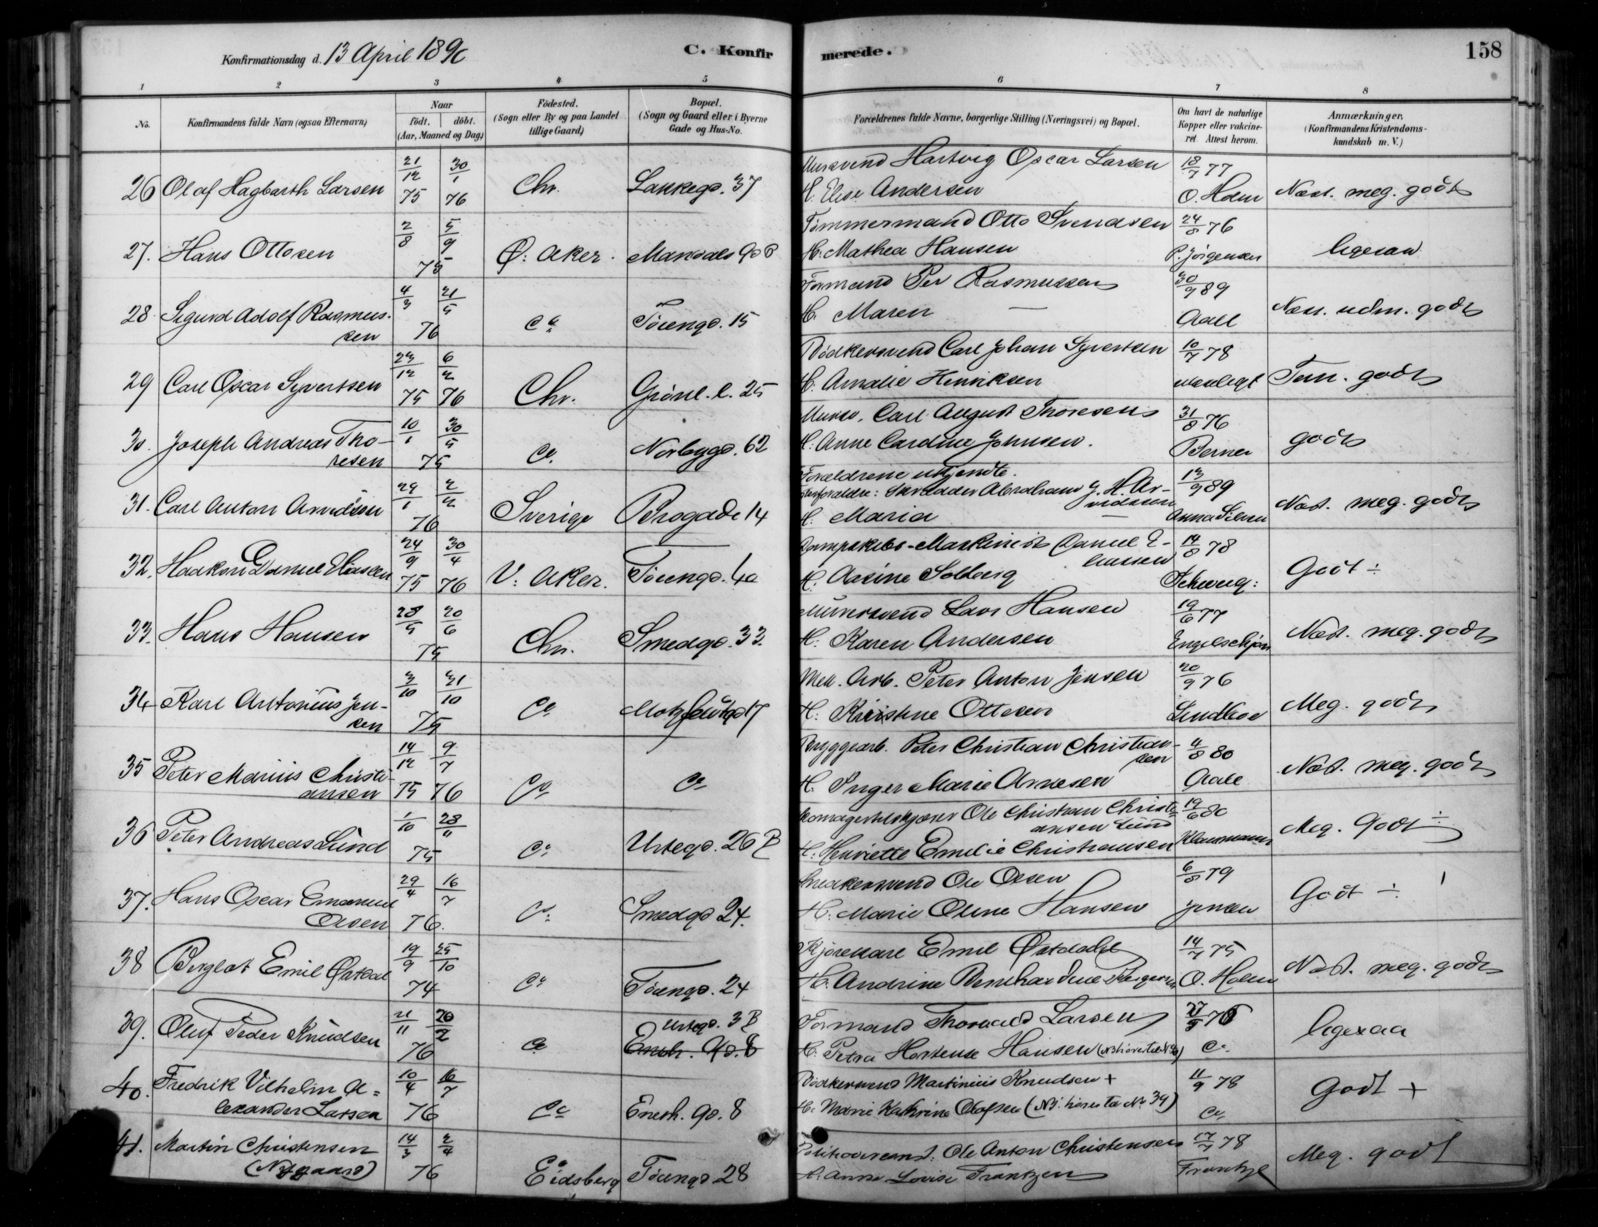 Konfirmationsdag d. 13 April 1890
C. Konfirmerede.
158
1 2 3 4 5 6 7 8
No. Konfirmandens fulde Navn (ogsaa Efternavn) Naar født. døbt. (Aar, Maaned og Dag) Fødested. (Sogn eller By og paa Landet tillige Gaard) Bopæl. (Sogn og Gaard eller i Byerne Gade og Hus-No. Forældrenes fulde Navne, borgerlige Stilling (Næringsvei) og Bopæl. Om havt de naturlige Kopper eller vaccineret. Attest herom. Anmærkninger. (Konfirmandens Kristendomskundskab m. V.)
26 Olaf Hagbarth Larsen 21/12 75 30/1 76 Chr. Lakkegd. 37 Mursvend Hartvig Oscar Larsen 18/7 77
H. Elise Andersen O. Holm Næst. meg. godt
27. Hans Ottosen 2/8 5/9 75 Ø: Aker. Tømmermand Otto Svendsen 24/8 76
H. Mathea Hansen P. Jørgensen ligesaa
28 Sigurd Adolf Rasmussen 4/3 21/5 76 Co Tøiengd. 15 Formand Per Rasmussen 30/9 89
H. Maren — Aall Næst. udm. godt
29 Carl Oscar Syvertsen 29/12 75 6/2 76 Chr. Grønl. l. 25 Bødkersvend Carl Johan Syvertsen 10/7 78
H. Amalie Henriksen Tem. godt
30. Joseph Andreas Thoresen 10/1 30/5 75 Co. Norbygd. 62 Murer. Carl August Thoresen 31/8 76
H. Anne Cardine Johnsen. Berner godt
31. Carl Anton Arvidsen 29/1 2/2 76 Sverige Brogade 14 Forældrene ubekjendte.
Skrædder Abraham G. H. Arvidsen
H. Maria — Næst. meg. godt
32. Haakon Daniel 24/9 75 30/4 76 V: Aker. Tøiengd. 40 Dampskibs-Maskinist Daniel 14/8 78
H. Assine Solberg Godt ÷
33. Hans Hansen 28/5 20/6 75 Chr. Smedgd. 33. Murersvend Lars Hansen 19/6 77
H. Karen Andersen Næst. meg. godt
34 Karl Antonius Jensen 3/10 31/10 75 Co Motzfeldtgd 17 Mek. Arb. Peter Anton Jensen 20/9 76
H. Kristine Ottesen Lindboe Meg. godt
35 Peter Marius Christiansen 14/12 75 9/7 76 Co Co Bryggearb. Peter Christian Christiansen 4/8 80
H. Inger Marie Arnesen Aall Næst. meg. godt
36 Peter Andreas Lund 1/10 28/11 75 Co Urtegd. 26 B Ole Christian Christiansen Lund 19/6 80
H. Henriette Emilie Christiansen Meg. Godt ÷
37. Hans Oscar Emanuel Olsen 29/4 16/7 76. Co. Smedgd 24. Snedkersvend Ole Olsen 6/8 79
H. Marie Oline Hansen Jensen Godt ÷
38 Emil Østdal 19/9 25/10 74 Co Tøiengd. 24 Kjørekarl Emil Østdahl 14/7 75
H. Andrine O. Holm Næst. meg. godt
39. Oluf Peder Knudsen 21/11 20/2 76 Co Urtegd. 3 B
Enerh. gd. 8 Formand Thorvald Larsen 27/5 76
H. Petra Hortense Hansen Co. ligesaa
40. Fredrik Vilhelm Alexander Larsen 10/4 16/7 76 Co Enerh. gd. 8 Bødkersvend Martinius Knudsen + 11/9 78
H. Marie Kathrine Olafsen (NB. hører til No 39) Co Godt +
41. Martin Christensen
(Nygaard) 14/3 2/4 76 Co
Eidsberg Tøiengd 28 Ole Anton Christensen 17/7 78
H. Anne Lovise Frantzen Meg. godt